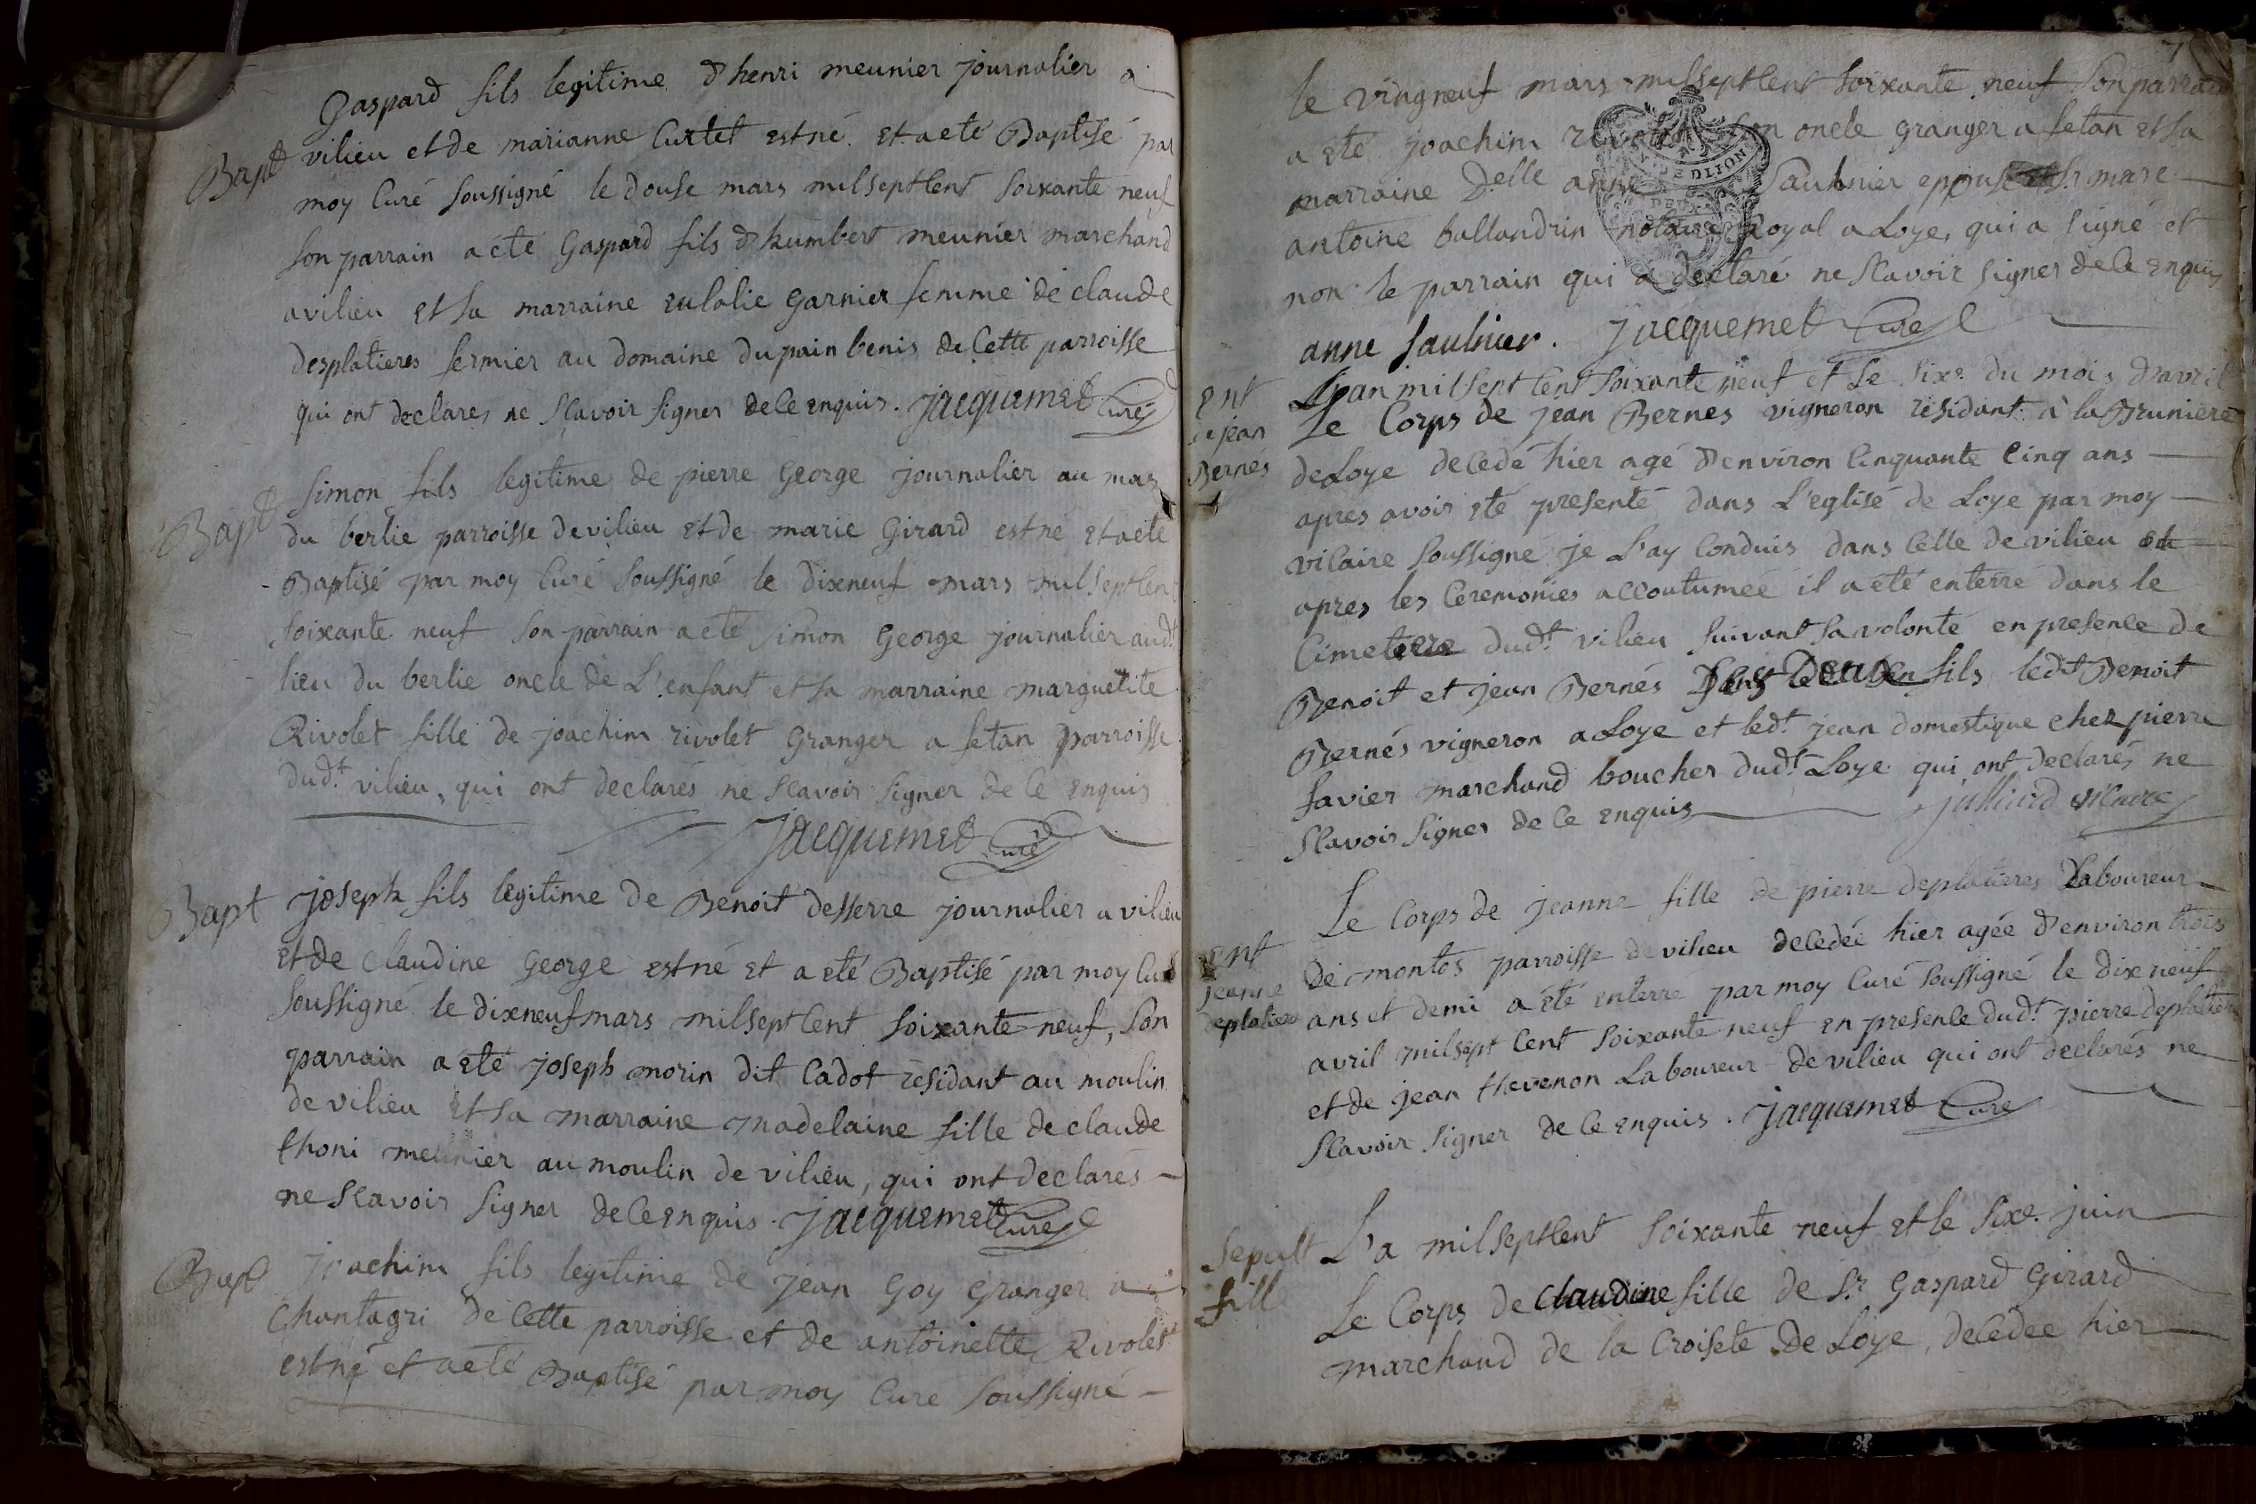 Gaspard fils legitime d'henri meunier journalier a
Bapt vilieu et de marianne Curtet est né et a eté Baptisé par
moy Curé soussigné le douse mars mil sept cent soixante neuf
son parrain a eté Gaspard fils d'humbert meunier marchand
a vilieu et sa marraine eulalie Garnier femme de claude
desplatieres fermier au domaine du pain benis de Cette parroisse
qui ont declares ne scavoir signer de ce enquis. Jacquemet Curé
Simon fils legitime de pierre George journalier au mas
Bapt du berlie parroisse de vilieu et de marie Girard est né et a eté
Baptisé par moy Curé soussigné le dixneuf mars mil sept cent
soixante neuf son parrain a eté simon George journalier aud.t
lieu du berlie oncle de L'enfant et sa marraine marguetite
Rivolet fille de joachim rivolet Granger a setan parroisse
dud.t vilieu, qui ont declarés ne scavoir signer de ce enquis
Jacquemet Curé
Bapt Joseph fils legitime de Benoit desserre journalier a vilieu
et de Claudine George est né et a eté Baptisé par moy Curé
soussigné le dixneuf mars mil sept cent soixante neuf, son
parrain a eté joseph morin dit Cadot residant au moulin
de vilieu et sa marraine madelaine fille de claude
thoni meunier au moulin de vilieu, qui ont declarés
ne scavoir signer de ce enquis. Jacquemet Curé
Bapt joachim fils legitime de jean Goy Granger a
Chantagri de Cette parroisse et de antoinette Rivolet
est né et a eté Baptisé par moy Cure soussigné
le vingneuf mars mil sept cent soixante neuf son parrain
a eté joachim son oncle granger a setan et sa
marraine D.elle anne Saulnier epouse Sr marc
antoine ballandrin notaire Royal a Loye, qui a signé et
non le parrain qui a declaré ne scavoir signer de ce enquis
anne saulnier. Jacquemet Curé
ent L'an mil sept cent soixante neuf et le six.e du mois d'avril
de jean Le Corps de jean Bernes vigneron residant à la Bruniere
Bernés de Loye decedé hier agé d'environ Cinquante Cinq ans
apres avoir eté presenté dans L'eglise de Loye par moy
vicaire soussigné je L'ay Conduis dans Celle de vilieu
apres les Ceremonies accoutumée il a eté enterré dans le
Cimeterre dud.t vilieu suivant sa volonté en presence de
Benoit et jean Bernés fils led.t Benoit
Bernés vigneron a Loye et led.t jean domestique chez pierre
favier marchand boucher dud.t Loye qui ont declarés ne
scavoir signer de ce enquis julliard vicaire
Le Corps de jeanne fille de pierre deplatieres Laboureur
ent de montos parroisse de vilieu decedée hier agée d'environ trois
jeanne ans et demi a été enterré par moy Curé soussigné le dixneuf
deplatiere avril mil sept cent soixante neuf en presence dud.t pierre deplatiere
et de jean thevenon Laboureur de vilieu qui ont declarés ne
scavoir signer de ce enquis. Jacquemet Curé
Sepult L'a mil sept cent soixante neuf et le six.e juin
fille Le Corps de Claudine fille de S.r Gaspard Girard
marchand de la Croisete de Loye, decedée hier